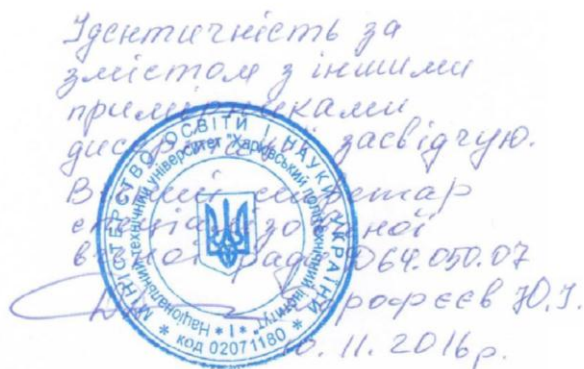 Ідентичність за
змістом з іншими
примірниками
дисертації засвідчую.
Вчений секретар
спеціалізованої
вченої ради Д64.050.07
Дорофєєв Ю.І.
10.11.2016р.
МІНІСТЕРСТВО ОСВІТИ І НАУКИ УКРАЇНИ
Національний технічний університет "Харківський політехнічний інститут"
* 1 *
* код 02071180 *